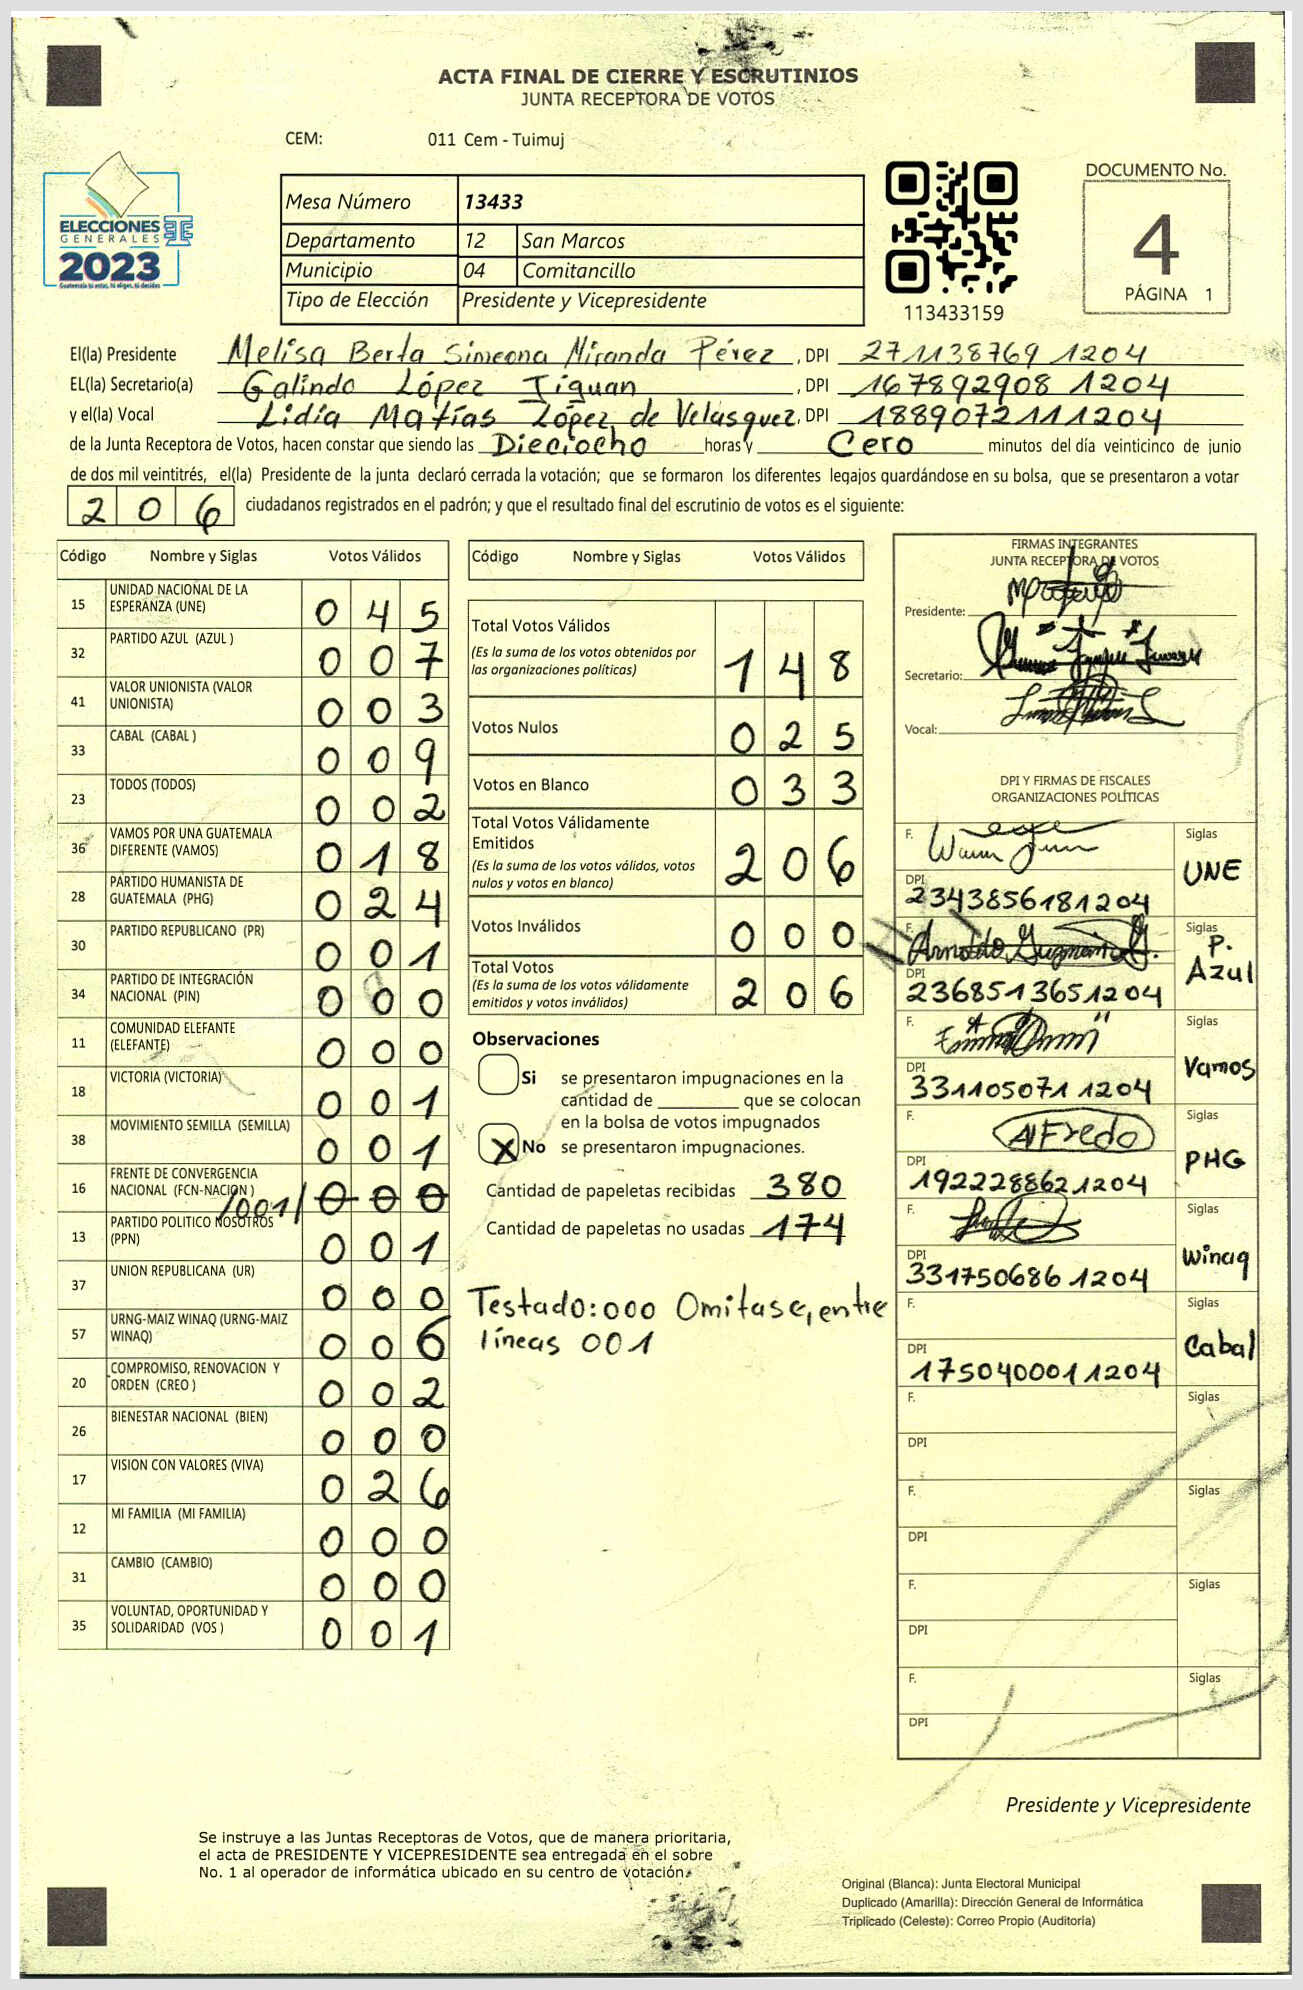 ACTA FINAL DE CIERRE Y ESCRUTINIOS
JUNTA RECEPTORA DE VOTOS
CEM: 011 Cem - Tuimuj
ELECCIONES
GENERALES
2023
Mesa Número 13433
Departamento 12 San Marcos
Municipio 04 Comitancillo
Tipo de Elección Presidente y Vicepresidente
113433159
DOCUMENTO No.
4
PÁGINA 1
El(la) Presidente Melisa Berta Simeona Miranda Pérez, DPI 271138769 1204
EL(la) Secretario(a) Galindo López Jiguan, DPI 167892908 1204
y el(la) Vocal Lidia Matías López de Velasquez, DPI 1889072111204
de la Junta Receptora de Votos, hacen constar que siendo las Dieciocho horas y Cero minutos del día veinticinco de junio
de dos mil veintitrés, el(la) Presidente de la junta declaró cerrada la votación; que se formaron los diferentes legajos guardándose en su bolsa, que se presentaron a votar
206 ciudadanos registrados en el padrón; y que el resultado final del escrutinio de votos es el siguiente:
Código Nombre y Siglas Votos Válidos
15 UNIDAD NACIONAL DE LA ESPERANZA (UNE) 045
32 PARTIDO AZUL (AZUL ) 007
41 VALOR UNIONISTA (VALOR UNIONISTA) 003
33 CABAL (CABAL ) 009
23 TODOS (TODOS) 002
36 VAMOS POR UNA GUATEMALA DIFERENTE (VAMOS) 018
28 PARTIDO HUMANISTA DE GUATEMALA (PHG) 024
30 PARTIDO REPUBLICANO (PR) 001
34 PARTIDO DE INTEGRACIÓN NACIONAL (PIN) 000
11 COMUNIDAD ELEFANTE (ELEFANTE) 000
18 VICTORIA (VICTORIA) 001
38 MOVIMIENTO SEMILLA (SEMILLA) 001
16 FRENTE DE CONVERGENCIA NACIONAL (FCN-NACION ) /001/ 000
13 PARTIDO POLITICO NOSOTROS (PPN) 001
37 UNION REPUBLICANA (UR) 000
57 URNG-MAIZ WINAQ (URNG-MAIZ WINAQ) 006
20 COMPROMISO, RENOVACION Y ORDEN (CREO ) 002
26 BIENESTAR NACIONAL (BIEN) 000
17 VISION CON VALORES (VIVA) 026
12 MI FAMILIA (MI FAMILIA) 000
31 CAMBIO (CAMBIO) 000
35 VOLUNTAD, OPORTUNIDAD Y SOLIDARIDAD (VOS ) 001
Código Nombre y Siglas Votos Válidos
Total Votos Válidos
(Es la suma de los votos obtenidos por
las organizaciones políticas) 148
Votos Nulos 025
Votos en Blanco 033
Total Votos Válidamente
Emitidos
(Es la suma de los votos válidos, votos
nulos y votos en blanco) 206
Votos Inválidos 000
Total Votos
(Es la suma de los votos válidamente
emitidos y votos inválidos) 206
Observaciones
Si se presentaron impugnaciones en la
cantidad de ________ que se colocan
en la bolsa de votos impugnados
X No se presentaron impugnaciones.
Cantidad de papeletas recibidas 380
Cantidad de papeletas no usadas 174
Testado: 000 Omitase, entre
líneas 001
FIRMAS INTEGRANTES
JUNTA RECEPTORA DE VOTOS
Presidente:
Secretario:
Vocal:
DPI Y FIRMAS DE FISCALES
ORGANIZACIONES POLÍTICAS
F. Siglas
UNE
DPI 2343856181204
F. Arnoldo Siglas
P. Azul
DPI 2368513651204
F. Siglas
Vamos
DPI 331105071 1204
F. Alfredo Siglas
PHG
DPI 1922288621204
F. Siglas
Winaq
DPI 331750686 1204
F. Siglas
Cabal
DPI 1750400011204
F. Siglas
DPI
F. Siglas
DPI
F. Siglas
DPI
F. Siglas
DPI
Presidente y Vicepresidente
Se instruye a las Juntas Receptoras de Votos, que de manera prioritaria,
el acta de PRESIDENTE Y VICEPRESIDENTE sea entregada en el sobre
No. 1 al operador de informática ubicado en su centro de votación.
Original (Blanca): Junta Electoral Municipal
Duplicado (Amarilla): Dirección General de Informática
Triplicado (Celeste): Correo Propio (Auditoría)